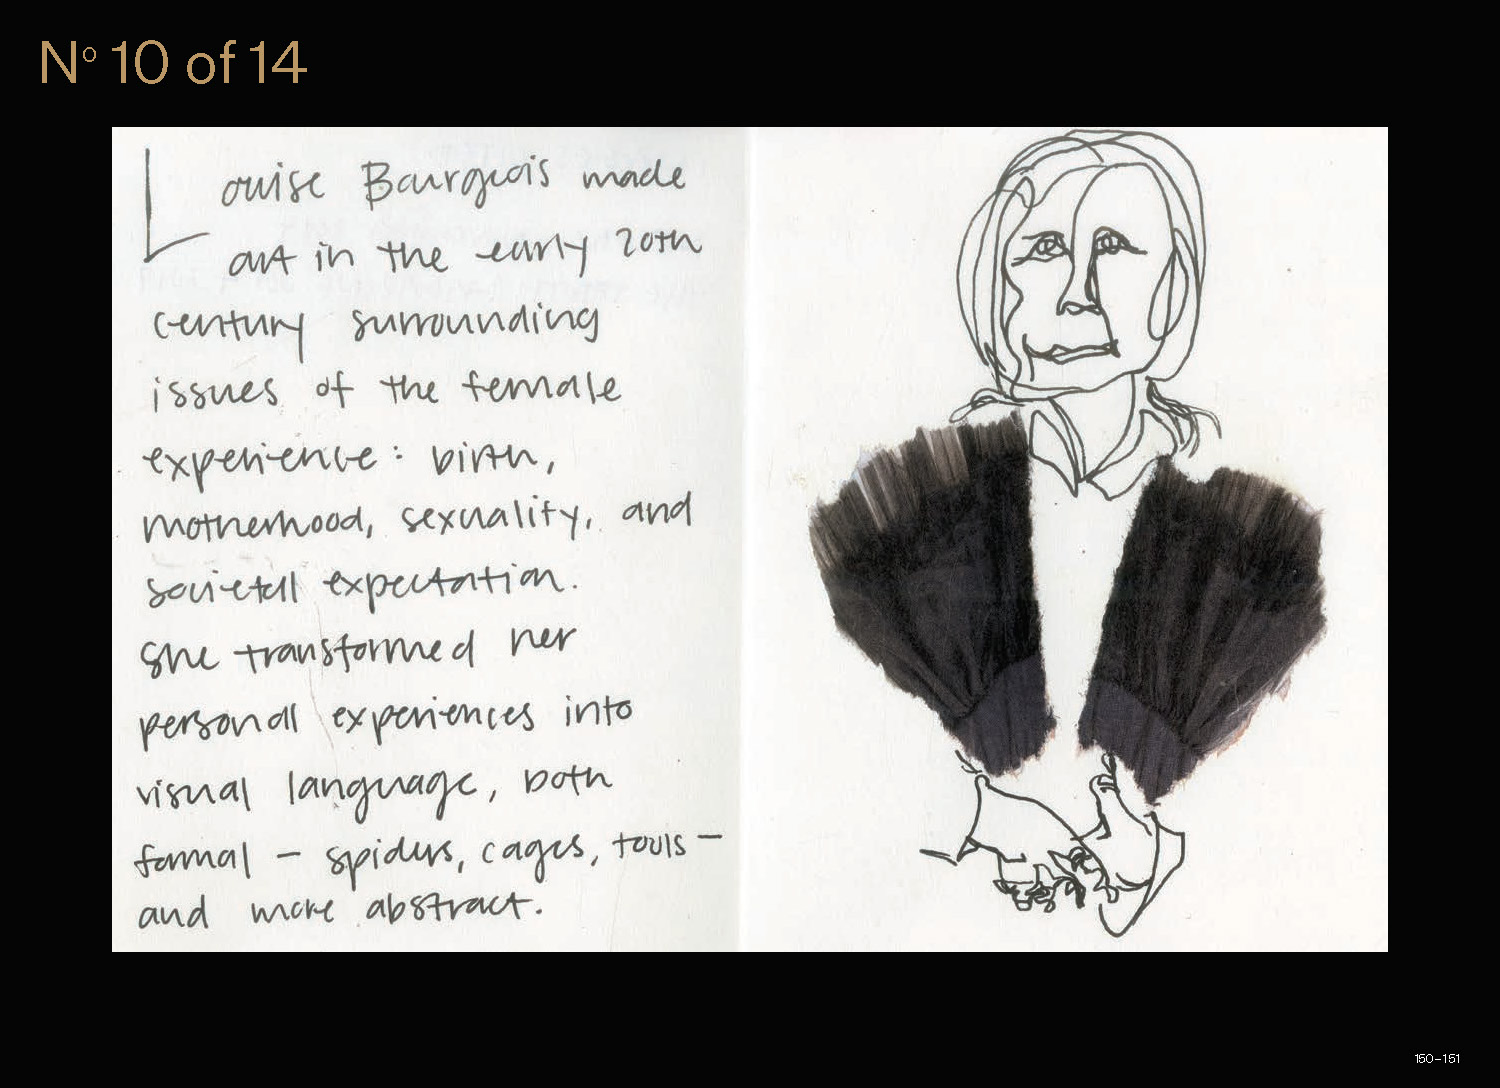 Nº 10 of 14
Louise Bourgeois made
art in the early 20th
century surrounding
issues of the female
experience: birth,
motherhood, sexuality, and
societall expectation.
She transformed her
personall experiences into
visual language, both
formal – spiders, cages, tools –
and more abstract.
150–151